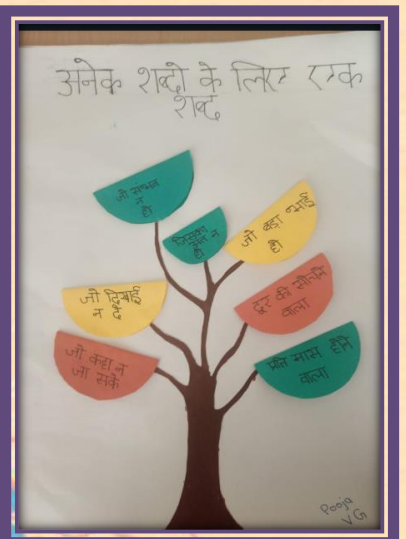 अनेक शब्दो के लिए एक
शब्द
जो संभव
न
हो
जिसका
न
हो
जो बड़ा भाई
हो
जो दिखाई
न दे
दूर की सोचने
वाला
जो कहा न
जा सके
प्रति मास होने
वाला
Pooja
V G